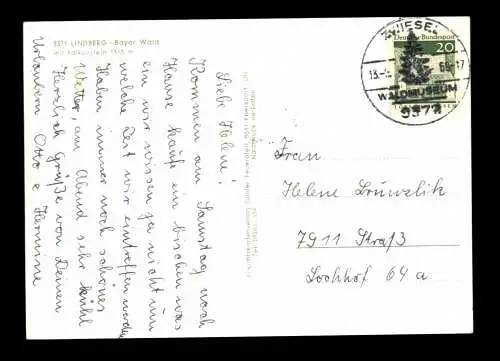 8371 LINDBERG - Bayer. Wald
mit Falkenstein 1315 m
Liebe Helene!
Kommen am Samstag nach
Hause kaufe ein bischen was
ein wir wissen ja nicht um
welche Zeit wir eintreffen werden
Haben immer noch schönes
Wetter, am Abend sehr kühl
Herzlich Grüße von Deinen
Urlaubern Otto e Hermine
Nachdruck verboten
ZWIESEL
13.-
-17
WALDMUSEUM
8372
Deutsche Bundespost
20
Frau
Helene
7911 Straß
Lochhof 64 a